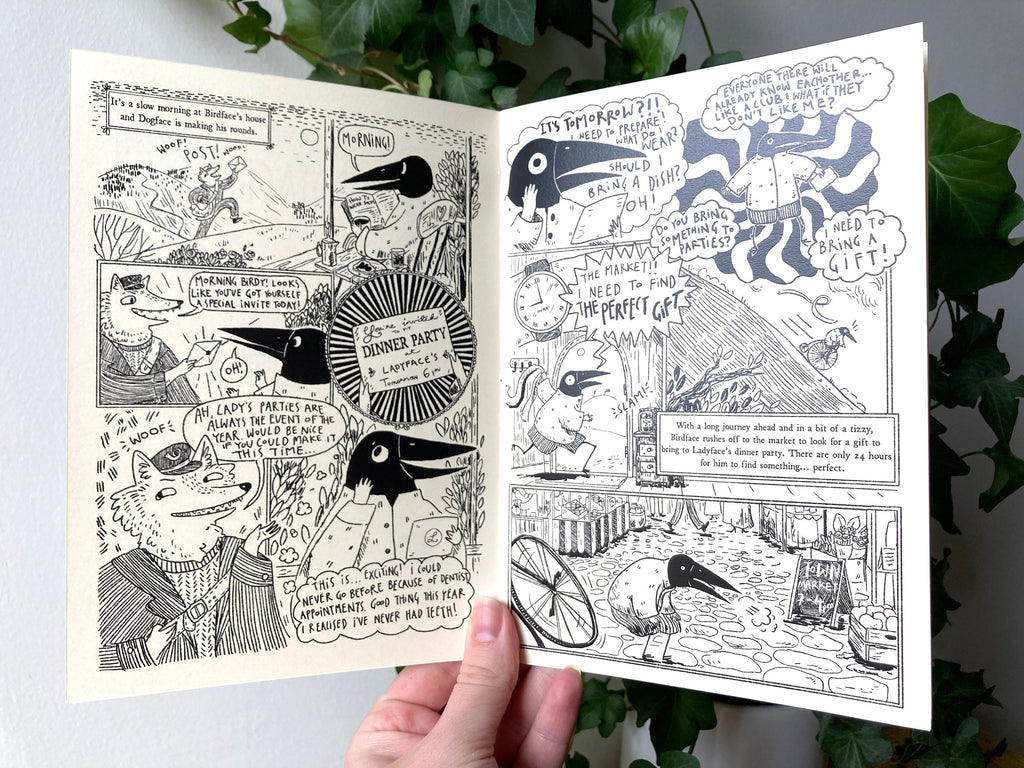 It's a slow morning at Birdface's house
and Dogface is making his rounds.
WOOF!
POST!
WOOF!
MORNING!
HOW TO
MORNING BIRDY! LOOKS
LIKE YOU'VE GOT YOURSELF
A SPECIAL INVITE TODAY!
OH!
You're invited
TO MY
DINNER PARTY
at
LADYFACE'S
Tomorrow 6pm
AH, LADY'S PARTIES ARE
ALWAYS THE EVENT OF THE
YEAR. WOULD BE NICE
IF YOU COULD MAKE IT
THIS TIME...
WOOF
THIS IS... EXCITING! I COULD
NEVER GO BEFORE BECAUSE OF DENTIST
APPOINTMENTS. GOOD THING THIS YEAR
I REALISED I'VE NEVER HAD TEETH!
IT'S TOMORROW?!!
I NEED TO PREPARE!
WHAT DO I
WEAR?
SHOULD I
BRING A DISH?
OH!
EVERYONE THERE WILL
ALREADY KNOW EACHOTHER...
LIKE A CLUB & WHAT IF THEY
DON'T LIKE ME?
DO YOU BRING
SOMETHING TO
PARTIES?
I NEED TO
BRING A
GIFT!
THE MARKET!!
I NEED TO FIND
THE PERFECT GIFT
SLAM!
With a long journey ahead and in a bit of a tizzy,
Birdface rushes off to the market to look for a gift to
bring to Ladyface's dinner party. There are only 24 hours
for him to find something... perfect.
TOWN
MARKET